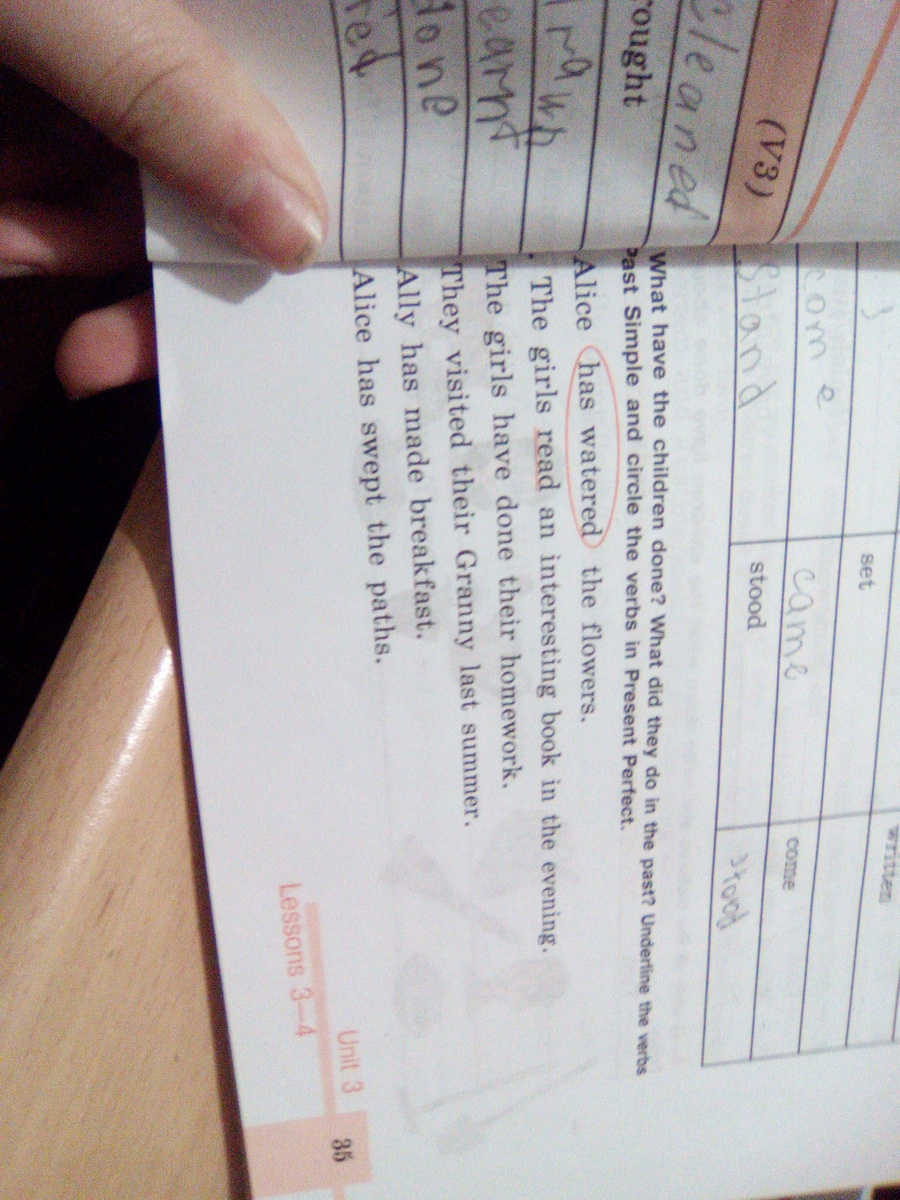 (V3)
cleaned
rought
rawn
earnt
done
set written
come came come
stand stood stood
What have the children done? What did they do in the past? Underline the verbs
Past Simple and circle the verbs in Present Perfect.
Alice has watered the flowers.
The girls read an interesting book in the evening.
The girls have done their homework.
They visited their Granny last summer.
Ally has made breakfast.
Alice has swept the paths.
Unit 3 35
Lessons 3–4